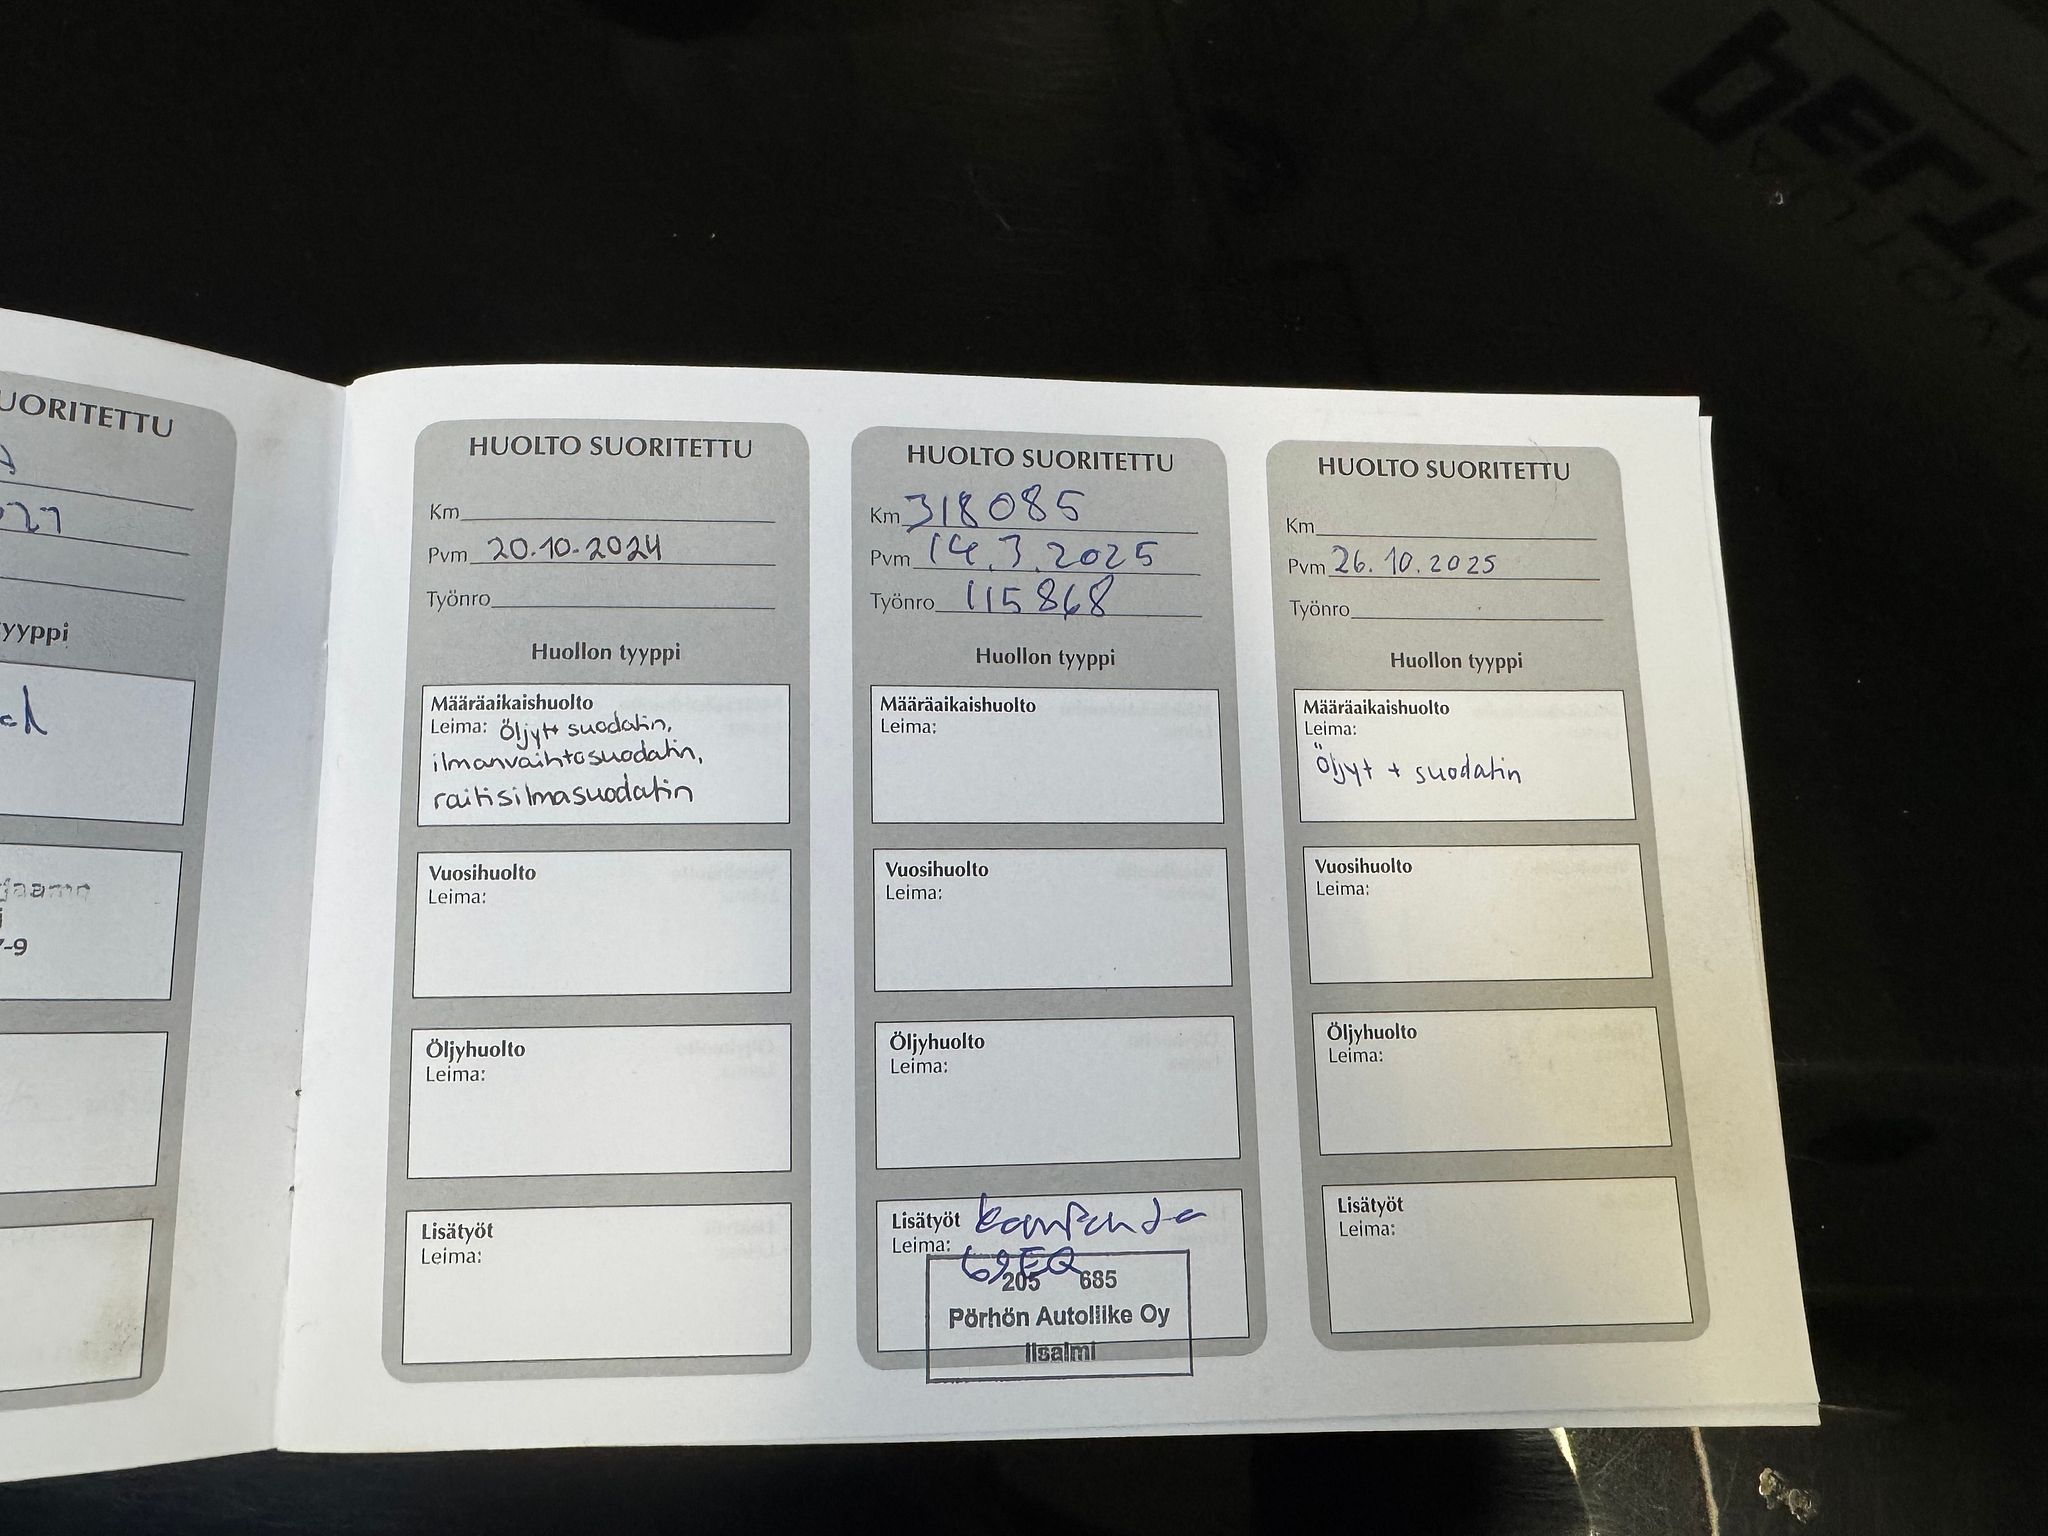 UORITETTU
yyppi
7-9
HUOLTO SUORITETTU
Km
Pvm 20.10.2024
Työnro
Huollon tyyppi
Määräaikaishuolto
Leima: Öljyt+ suodatin,
ilmanvaihtosuodatin,
raitisilmasuodatin
Vuosihuolto
Leima:
Öljyhuolto
Leima:
Lisätyöt
Leima:
HUOLTO SUORITETTU
Km 318085
Pvm 14.3.2025
Työnro 115868
Huollon tyyppi
Määräaikaishuolto
Leima:
Vuosihuolto
Leima:
Öljyhuolto
Leima:
Lisätyöt
Leima: 69EQ
205 685
Pörhön Autoliike Oy
Iisalmi
HUOLTO SUORITETTU
Km
Pvm 26.10.2025
Työnro
Huollon tyyppi
Määräaikaishuolto
Leima:
Öljyt + suodatin
Vuosihuolto
Leima:
Öljyhuolto
Leima:
Lisätyöt
Leima: